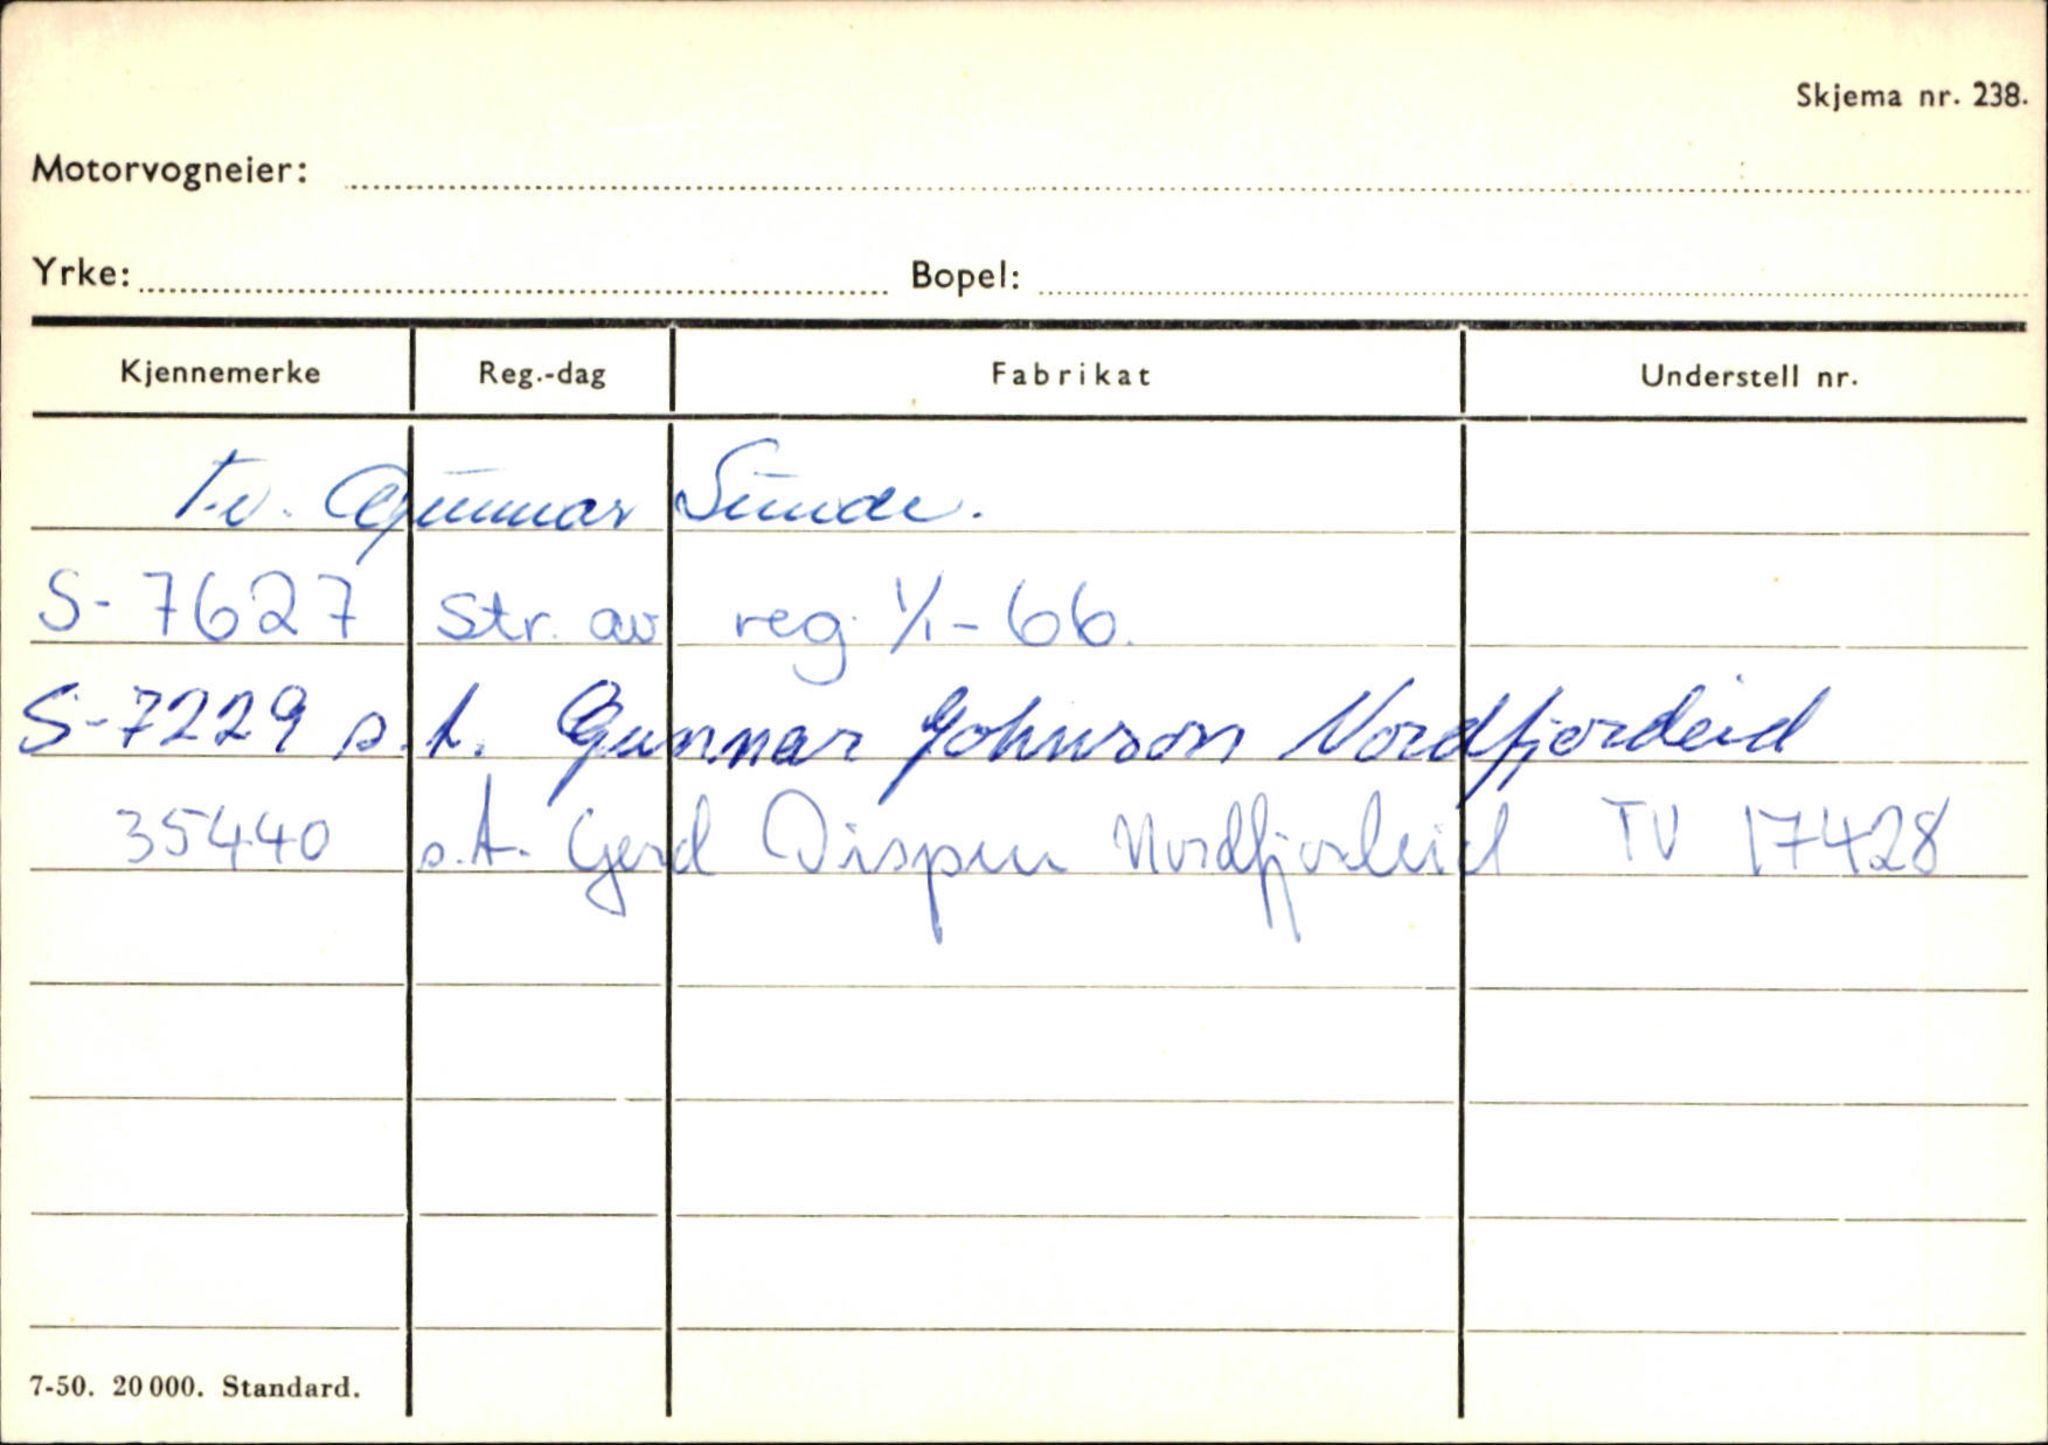 Skjema nr. 238.
Motorvogneier:
Yrke: Bopel:
Kjennemerke Reg.-dag Fabrikat Understell nr.
Tv. Gunnar Sunde.
S-7627 str. av reg. 1/1-66.
S-7229 s.t. Gunnar Johnson Nordfjordeid
35440 s.t. Gerd Nordfjordeid TV 17428
7-50. 20 000. Standard.